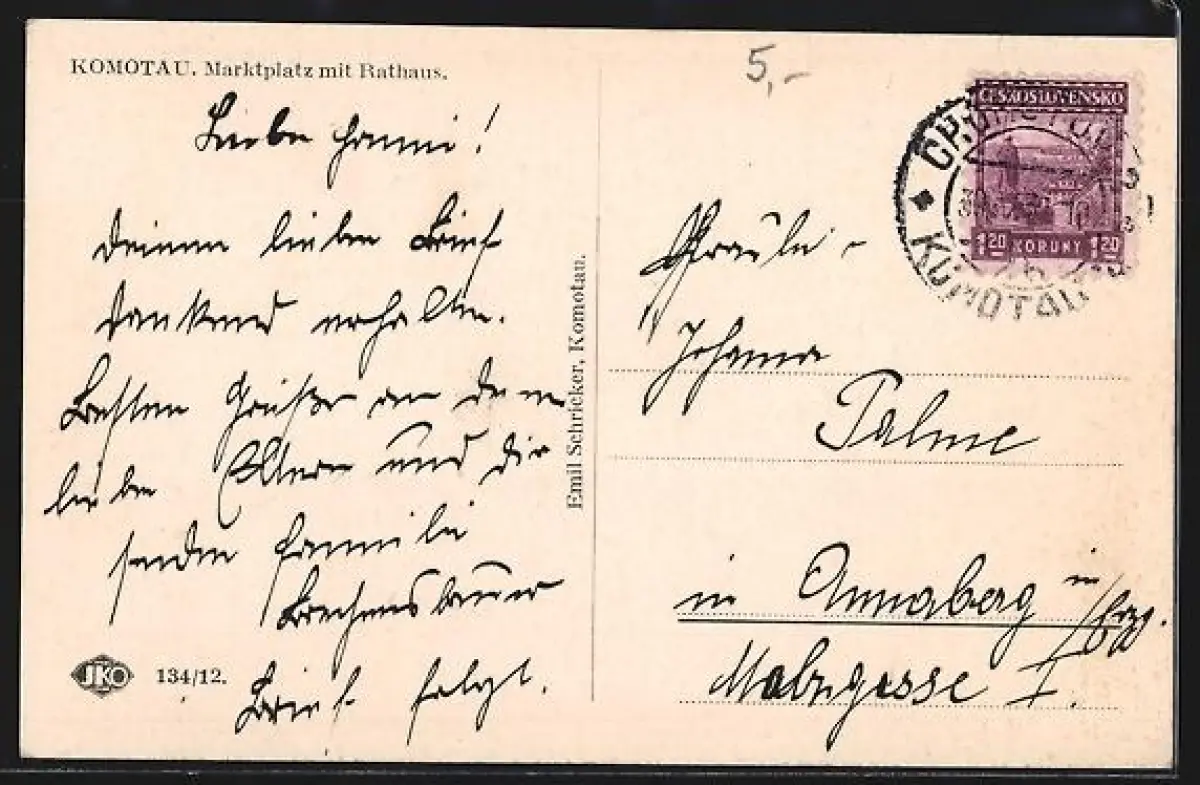 KOMOTAU. Marktplatz mit Rathaus.
Liebe Hanni!
Deinen lieben Brief
dankend erhalten.
Besten Grüße an deine
lieben Eltern und Dir
senden Familie
Brief folgt.
JKO 134/12.
Emil Schricker, Komotau.
5,-
ČESKOSLOVENSKO
1 20 KORUNY 1 20
KOMOTAU
Fräulein
Johanna
Palme
in Annaberg in
/Erzg.
I.